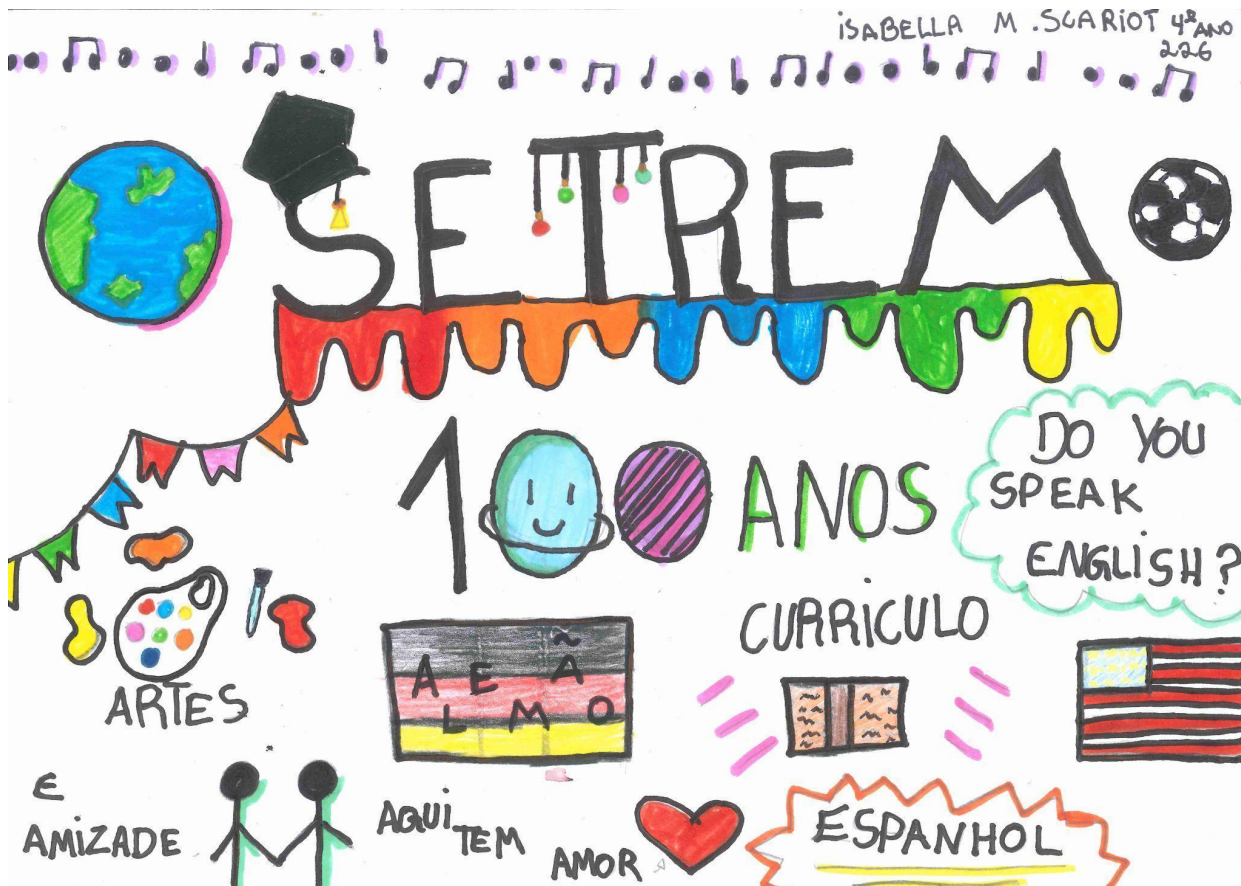 ISABELLA M. SCARIOT 4º ANO
226
SETREM
100 ANOS
DO YOU
SPEAK
ENGLISH?
CURRICULO
ALEMÃO
ARTES
E
AMIZADE
AQUI
TEM
AMOR
ESPANHOL